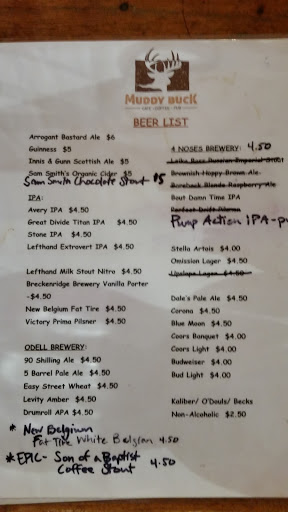 MUDDY BUCK
CAFE - COFFEE - PUB
BEER LIST
Arrogant Bastard Ale $6
Guinness $5
Innis & Gunn Scottish Ale $5
Sam Smith's Organic Cider $5
Sam Smith Chocolate Stout $5
IPA:
Avery IPA $4.50
Great Divide Titan IPA $4.50
Stone IPA $4.50
Lefthand Extrovert IPA $4.50
Lefthand Milk Stout Nitro $4.50
Breckenridge Brewery Vanilla Porter
-$4.50
New Belgium Fat Tire $4.50
Victory Prima Pilsner $4.50
ODELL BREWERY:
90 Shilling Ale $4.50
5 Barrel Pale Ale $4.50
Easy Street Wheat $4.50
Levity Amber $4.50
Drumroll APA $4.50
* New Belgium
Fat Tire White Belgian 4.50
* EPIC - Son of a Baptist
Coffee Stout 4.50
4 NOSES BREWERY: 4.50
Laika Boss Russian Imperial Stout
Brownish Hoppy Brown Ale
Bareback Blonde Raspberry Ale
Bout Damn Time IPA
Perfect Drift Pilsner
Pump Action IPA-pu
Stella Artois $4.00
Omission Lager $4.50
Upslope Lager $4.50
Dale's Pale Ale $4.50
Corona $4.50
Blue Moon $4.50
Coors Banquet $4.00
Coors Light $4.00
Budweiser $4.00
Bud Light $4.00
Kaliber/ O'Douls/ Becks
Non-Alcoholic $2.50